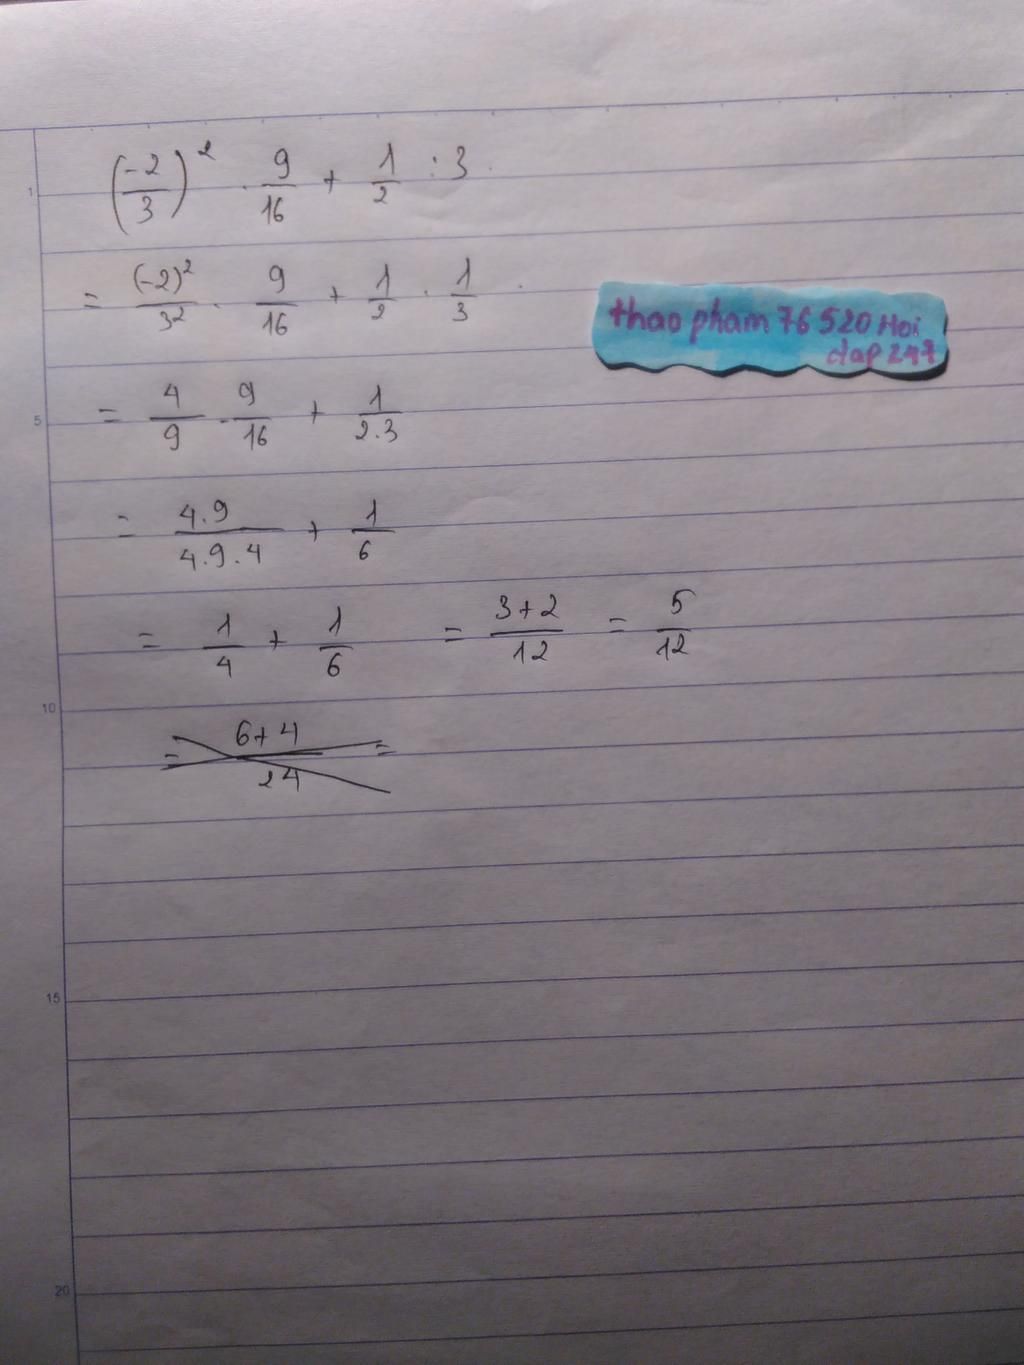 (-2/3)² . 9/16 + 1/2 : 3
= (-2)²/3² . 9/16 + 1/2 . 1/3
thao pham 76 520 Hoi
dap 247
= 4/9 . 9/16 + 1/2.3
= 4.9/4.9.4 + 1/6
= 1/4 + 1/6 = 3+2/12 = 5/12
= 6+4/24 =
1
5
10
15
20